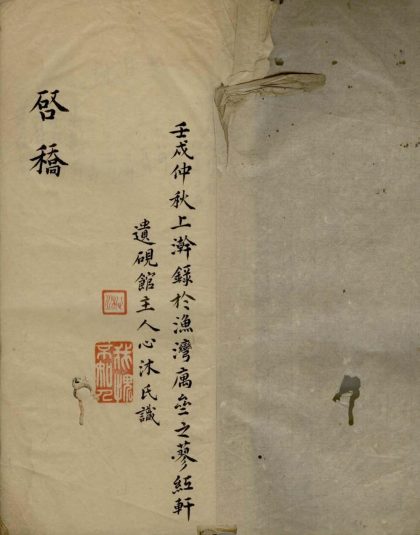 壬戌仲秋上澣錄於漁灣庽垒之蓼紅軒
遺硯館主人心沐氏識
啓稿